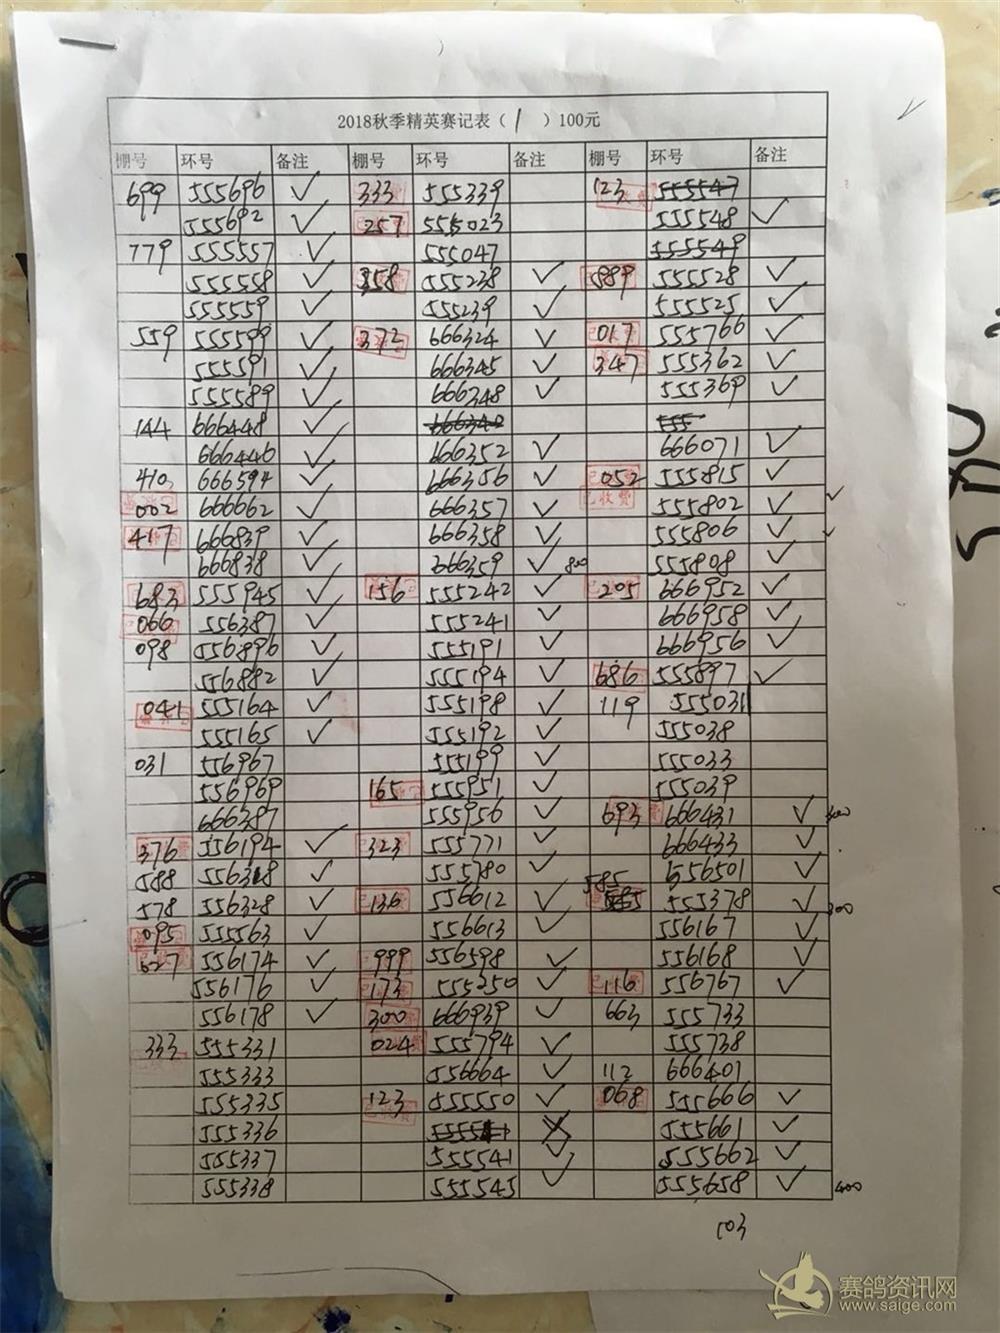 2018秋季精英赛记表（ 1 ）100元
棚号 环号 备注 棚号 环号 备注 棚号 环号 备注
699 555696 ✓ 333 555339 123
555692 ✓ 257 555023 555548 ✓
779 555557 ✓ 555047 555549
555558 ✓ 358 555238 ✓ 889 555528 ✓
555559 ✓ 555239 ✓ 555525 ✓
559 555599 ✓ 372 666324 ✓ 017 555766 ✓
555591 ✓ 666345 ✓ 347 555362 ✓
555589 ✓ 666348 ✓ 555369 ✓
144 666448 ✓ 555
666446 ✓ 666352 ✓ 666071 ✓
410 666594 ✓ 666356 ✓ 052 555815 ✓
002 666662 ✓ 666357 ✓ 已收费 555802 ✓ ✓
417 666839 ✓ 666358 ✓ 555806 ✓ ✓
666838 ✓ 666359 ✓ 800 555808 ✓
683 555945 ✓ 156 555242 ✓ 205 666952 ✓
066 556387 ✓ 555241 ✓ 666958 ✓
098 556896 ✓ 555191 ✓ 666956 ✓
556882 ✓ 555194 ✓ 686 555897 ✓
041 555164 ✓ 555198 ✓ 119 555031
555165 ✓ 555192 ✓ 555038
031 556967 555199 ✓ 555033
556969 165 555951 ✓ 555039
666387 555956 ✓ 693 666431 ✓
376 556194 ✓ 323 555771 ✓ 666433 ✓
588 556328 ✓ 555780 ✓ 556501 ✓
578 556328 ✓ 136 556612 ✓ 585 555378 ✓ 300
095 555563 ✓ 556613 ✓ 556167 ✓
027 556174 ✓ 999 556598 ✓ 556168 ✓
556176 ✓ 173 555250 ✓ 116 556767 ✓
556178 ✓ 300 666939 ✓ 663 555733
333 555331 024 555794 ✓ 555738
555333 556664 ✓ 112 666401
555335 123 555550 ✓ 068 555666 ✓
555336 555661 ✓
555337 555541 ✓ 555662 ✓
555338 555545 ✓ 555658 ✓ 400
103
赛鸽资讯网
www.saige.com